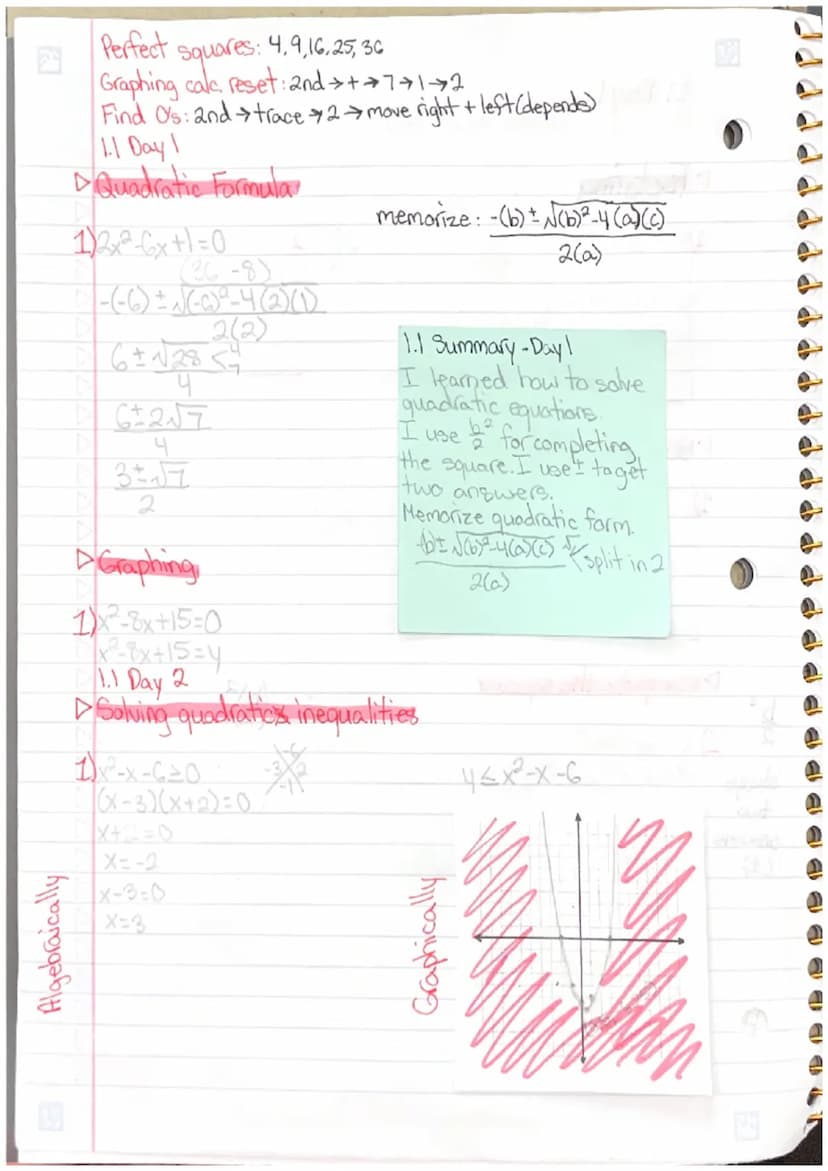 Perfect squares: 4,9,16,25,36
Graphing calc. reset: 2nd→+→7→1→2
Find 0's: 2nd→trace→2→move right + left(depends)
1.1 Day 1
▷Quadratic Formula
memorize: -(b)±√(b)²-4(a)(c)
2(a)
1)2x²-6x+1=0
(36 -8)
-(-6)±√(-6)²-4(2)(1)
2(2)
6±√28 <4 7
4
6±2√7
4
3±√7
2
1.1 Summary-Day 1
I learned how to solve
quadratic equations.
I use b²/2 for completing
the square. I use ± to get
two answers.
Memorize quadratic form.
-b±√(b)²-4(a)(c)
split in 2
2(a)
▷Graphing
1)x²-8x+15=0
x²-8x+15=y
1.1 Day 2
▷Solving quadratics inequalities
Algebraically
1)x²-x-6≥0
-6
-3 2
-1
(x-3)(x+2)=0
x+2=0
x=-2
x-3=0
x=3
Graphically
y≤x²-x-6